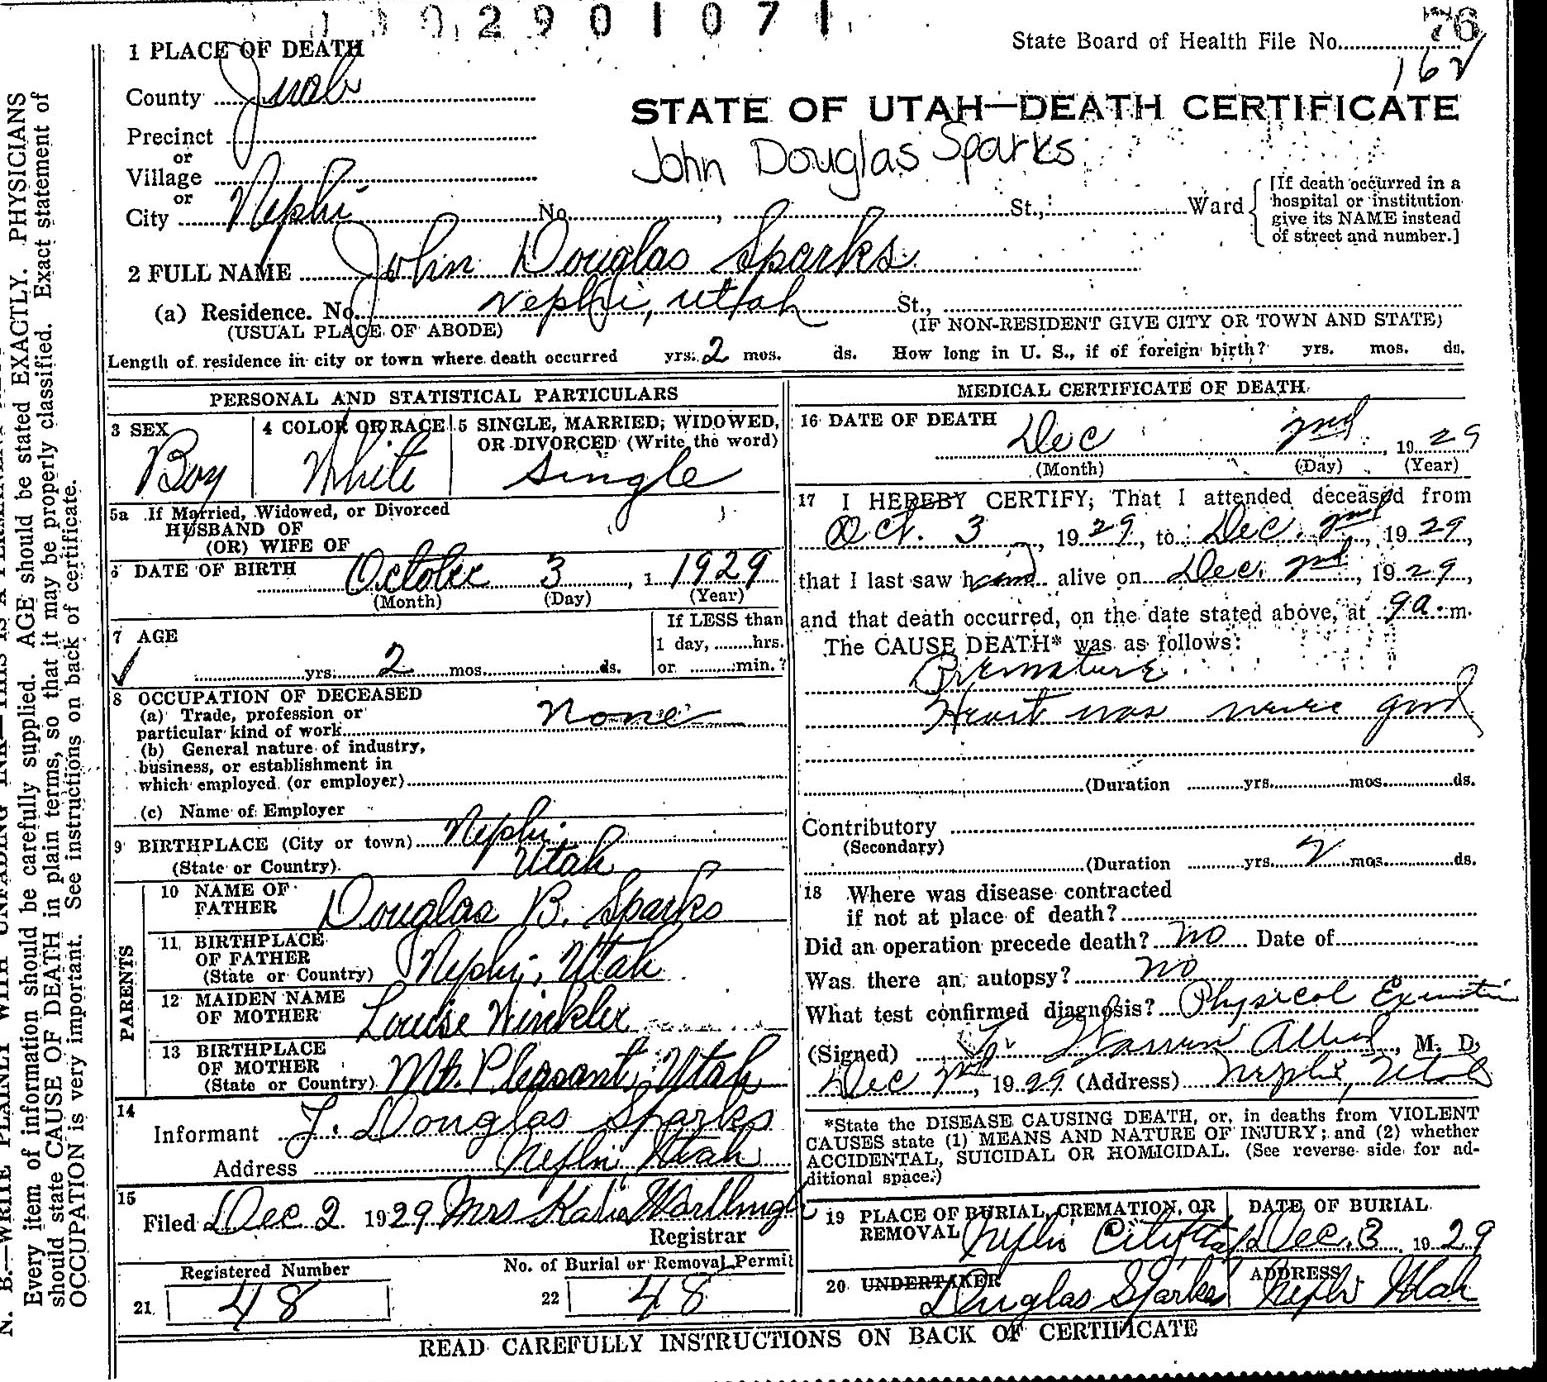 2901071
76
State Board of Health File No.
162
1 PLACE OF DEATH
County Juab
STATE OF UTAH—DEATH CERTIFICATE
Precinct
or
Village
or
City Nephi No. , St., Ward
John Douglas Sparks
[If death occurred in a
hospital or institution
give its NAME instead
of street and number.]
2 FULL NAME John Douglas Sparks
(a) Residence. No. Nephi, Utah St.,
(USUAL PLACE OF ABODE) (IF NON-RESIDENT GIVE CITY OR TOWN AND STATE)
Length of residence in city or town where death occurred yrs. 2 mos. ds. How long in U. S., if of foreign birth? yrs. mos. ds.
PERSONAL AND STATISTICAL PARTICULARS
3 SEX 4 COLOR OR RACE 5 SINGLE, MARRIED, WIDOWED,
OR DIVORCED (Write the word)
Boy White Single
5a If Married, Widowed, or Divorced
HUSBAND OF
(OR) WIFE OF
6 DATE OF BIRTH October 3, 1 1929
(Month) (Day) (Year)
7 AGE If LESS than
1 day, hrs.
yrs. 2 mos. ds. or min.?
8 OCCUPATION OF DECEASED
(a) Trade, profession or
particular kind of work None
(b) General nature of industry,
business, or establishment in
which employed (or employer)
(c) Name of Employer
9 BIRTHPLACE (City or town) Nephi
(State or Country). Utah
PARENTS
10 NAME OF
FATHER Douglas B. Sparks
11 BIRTHPLACE
OF FATHER
(State or Country) Nephi, Utah
12 MAIDEN NAME
OF MOTHER Louise Winkler
13 BIRTHPLACE
OF MOTHER
(State or Country) Mt. Pleasant, Utah
14
Informant J. Douglas Sparks
Address Nephi, Utah
15
Filed Dec 2 1929 Mrs
Registrar
Registered Number No. of Burial or Removal Permit
21 48 22 48
MEDICAL CERTIFICATE OF DEATH
16 DATE OF DEATH
Dec 2nd, 1929
(Month) (Day) (Year)
17 I HEREBY CERTIFY, That I attended deceased from
Oct. 3, 1929, to Dec. 2nd, 1929,
that I last saw h alive on Dec. 2nd, 1929,
and that death occurred, on the date stated above, at 9a.m.
The CAUSE DEATH* was as follows:
Premature
Heart was never good
(Duration yrs. mos. ds.
Contributory
(Secondary)
(Duration yrs. 2 mos. ds.
18 Where was disease contracted
if not at place of death?
Did an operation precede death? no Date of
Was there an autopsy? no
What test confirmed diagnosis? Physical
(Signed) M. D.
Dec 2nd, 1929 (Address) Nephi, Utah
*State the DISEASE CAUSING DEATH, or, in deaths from VIOLENT
CAUSES state (1) MEANS AND NATURE OF INJURY; and (2) whether
ACCIDENTAL, SUICIDAL OR HOMICIDAL. (See reverse side for ad-
ditional space.)
19 PLACE OF BURIAL, CREMATION, OR DATE OF BURIAL
REMOVAL Nephi City Dec. 3 1929
20 UNDERTAKER ADDRESS
Douglas Sparks Nephi Utah
READ CAREFULLY INSTRUCTIONS ON BACK OF CERTIFICATE
Every item of information should be carefully supplied. AGE should be stated EXACTLY. PHYSICIANS
should state CAUSE OF DEATH in plain terms, so that it may be properly classified. Exact statement of
OCCUPATION is very important. See instructions on back of certificate.